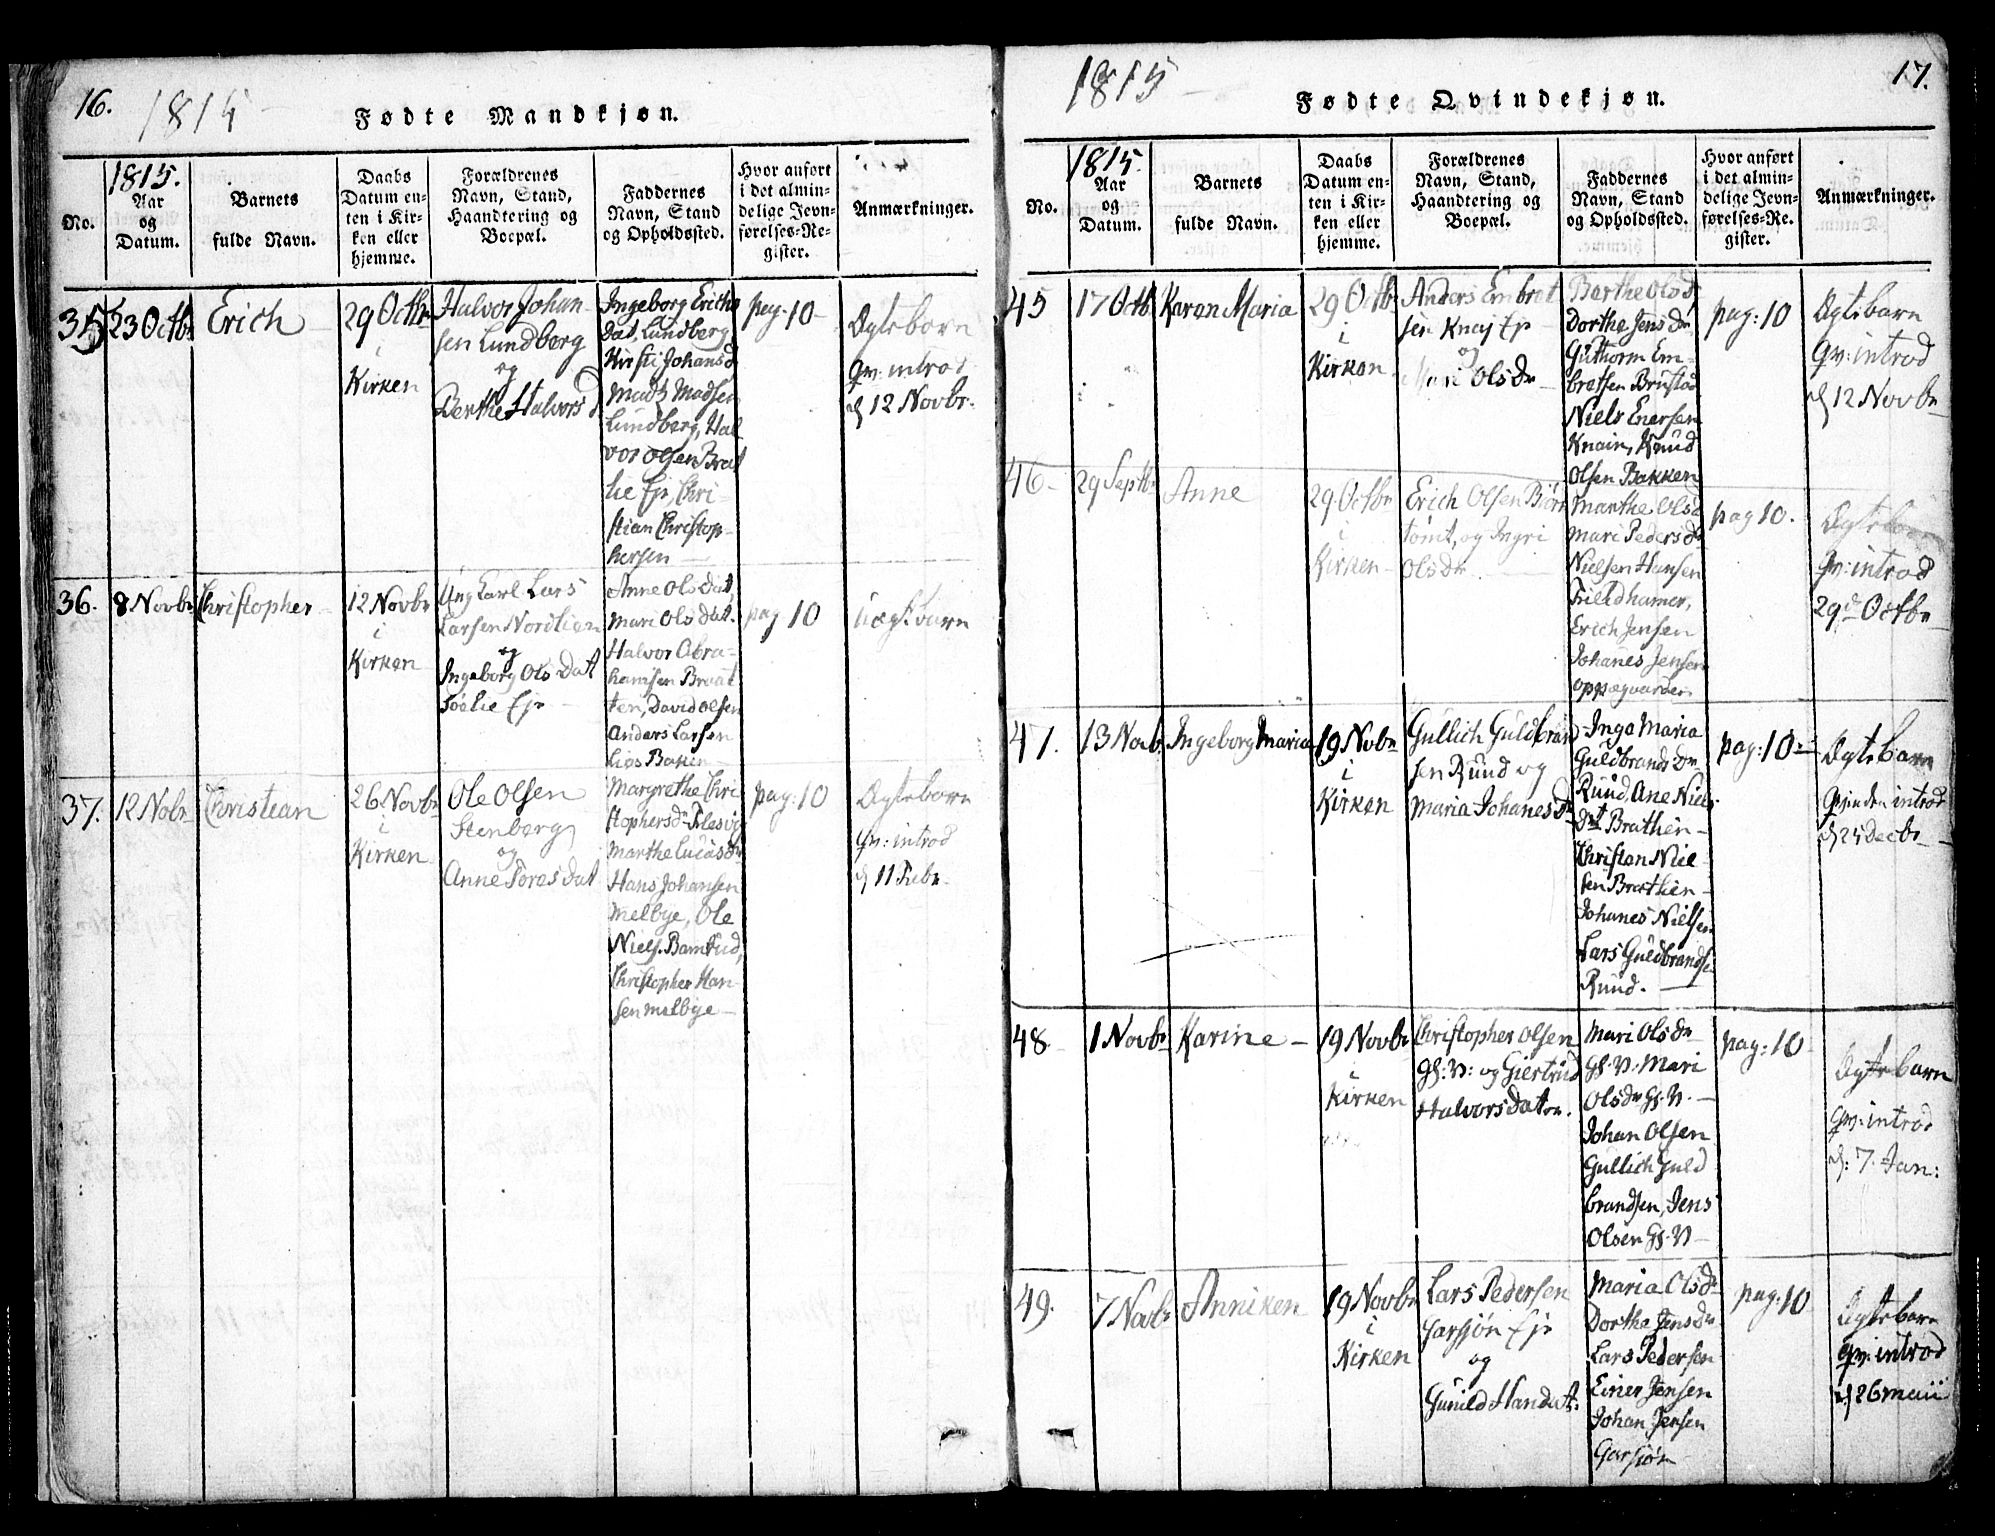 16.
1815
Fødte Mandkjøn.
No.
1815.
Aar
og
Datum.
Barnets
fulde Navn.
Daabs
Datum en-
ten i Kir-
ken eller
hjemme.
Forældrenes
Navn, Stand,
Haandtering og
Boepæl.
Faddernes
Navn, Stand
og Opholdssted.
Hvor anført
i det almin-
delige Jevn-
førelses-Re-
gister.
Anmærkninger.
35
23 Octbr
Erich
29 Octbr
i
Kirken
Halvor Johan-
sen Lundberg
og
Berthe Halvorsd
Ingeborg Erichs
dat, Lundberg
Kirsti Johansd
Madz Madsen
Lundberg, Hal-
vor Olsen Brat
lie Eje, Chri-
stian Christop-
hersen
pag. 10
Ægtebarn
Qv: introd
d 12 Novbr.
36.
8 Novbr
Christopher
12 Novbr
i
Kirken
Ung Karl Lars
Larsen Nordlien
og
Ingeborg Ols Dat
Søelie Eje
Anne Ols Dat,
Mari Ols Dat.
Halvor Abra-
hamsen Braat
ten, David Olsen
Anders Larsen
Lios Baken
pag 10
Uægt barn
37.
12 Nobr
Christian
26 Novbr
i
Kirken
Ole Olsen
Stenberg
og
Anne Toresdat
Margrethe Chri
stophersdr
Marthe Lucasdr
Hans Johansen
Melbye, Ole
Niels. Bamrud,
Christopher Han
sen Melbye
pag: 10
Ægtebarn
Qv: introd
d 11 Febr.
1815
17.
Fødte Qvindekjøn.
No.
1815.
Aar
og
Datum.
Barnets
fulde Navn.
Daabs
Datum en-
ten i Kir-
ken eller
hjemme.
Forældrenes
Navn, Stand,
Haandtering og
Boepæl.
Faddernes
Navn, Stand
og Opholdssted.
Hvor anført
i det almin-
delige Jevn-
førelses-Re-
gister.
Anmærkninger.
45
17 Octb
Karen Maria
29 Octbr
i
Kirken
Anders Embret
sen Knaj Eje
og
Mari Olsdr
Barthe Olsd
Dorthe Jensdr
Guthorm Em-
bretsen Brustad
Niels Enersen
Knain, Knud
Olsen Bakken
pag: 10
Ægtebarn
Qv: introd
d 12 Novbr
46
29 Septbr
Anne
29 Octbr
i
Kirken
Erich Olsen Biørn
tomt, og Ingri
Olsdr
Marthe Olsd
Mari Pedersdr
Nielsen Hansen
Trieldhamer,
Erich Jensen
Johanes Jensen
oppegaarden
pag 10.
Ægtebarn
Qv: introd
29de Octbr
47.
13 Novb.
Ingeborg Maria
19 Nobr
i
Kirken
Gullich Guldbrand
sen Ruud og
Maria Johanesdr
Inga Maria
Guldbrandsdr
Ruud, Ane Niels
dat Brathen
Christen Niel-
sen Brathen
Johanes Nielsen
Lars Guldbrandse
Ruud.
pag: 10
Ægtebarn
Qvinden introd
d 25 Decbr
48
1 Novbr
Karine
19 Novbr
i
Kirken
Christopher Olsen
GS: V: og Giertrud
Halvorsdat
Mari Olsdr
GS: V: Mari
Olsdr GS. V.
Johan Olsen
Gullich Guld
brandsen, Jens
Olsen GS. V
pag: 10
Ægtebarn
Qv: introd
d: 7. Jan:
49.
7 Novbr
Anniken
19 Novbr
i
Kirken
Lars Pedersen
Garsjøn Eje
og
Gunild Handat.
Maria Olsdr
Dorthe Jensdr
Lars Pedersen
Einer Jensen
Johan Jensen
Garsjøn
pag: 10
Ægtebarn
Qv: introd
d 26 Maii